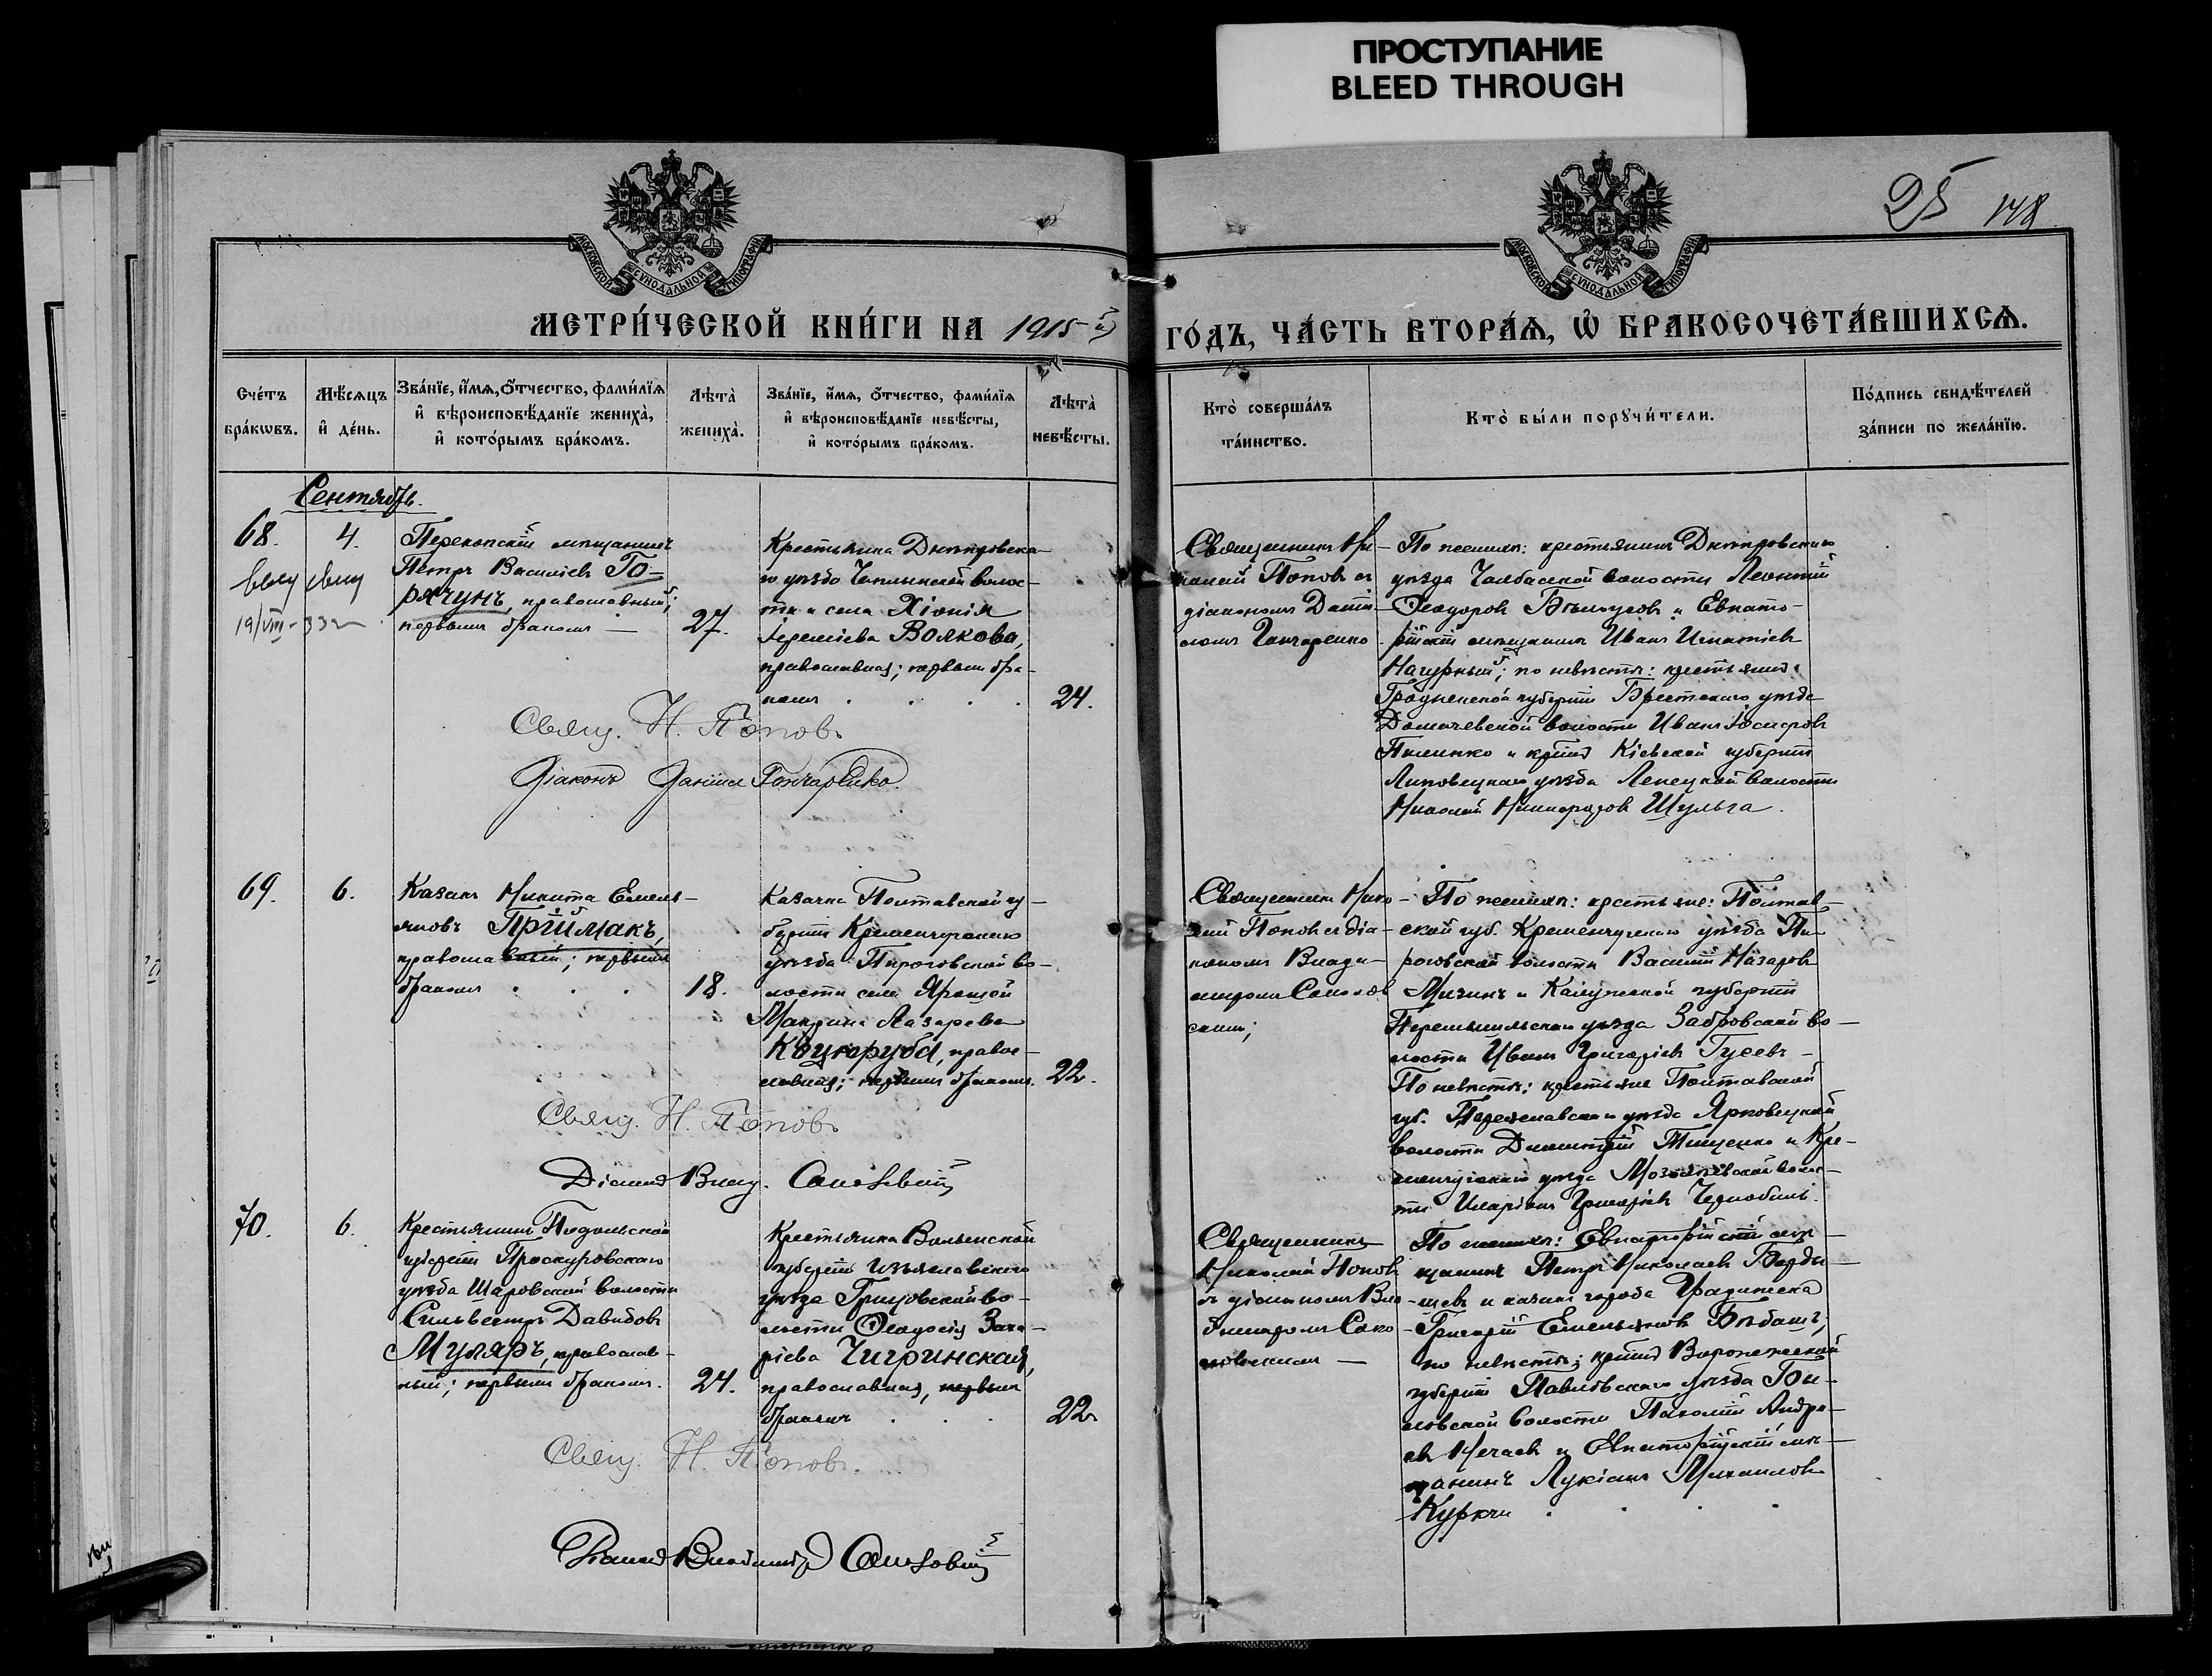 ПРОСТУПАНИЕ
BLEED THROUGH
25 148
МОСКОВСКОЙ СѴНОДАЛЬНОЙ ТИПОГРАФІИ
МОСКОВСКОЙ СѴНОДАЛЬНОЙ ТИПОГРАФІИ
МЕТРИ́ЧЕСКОЙ КНИ́ГИ НА 1915-й
ГО́ДЪ, ЧА́СТЬ ВТОРА́Ѧ, Ѽ БРАКОСОЧЕТА́ВШИХСѦ.
Сче́тъ бра́кѡвъ.
Мѣ́сѧцъ и҆ де́нь.
Зва́нїе, и҆́мѧ, ѻ҆́тчество, фами́лїѧ
и҆ вѣроисповѣ́данїе жениха̀,
и҆ кото́рымъ бра́комъ.
Лѣта̀ жениха̀.
Зва́нїе, и҆́мѧ, ѻ҆́тчество, фами́лїѧ
и҆ вѣроисповѣ́данїе невѣ́сты,
и҆ кото́рымъ бра́комъ.
Лѣта̀ невѣ́сты.
Кто̀ соверша́лъ
та́инство.
Кто̀ бы́ли порꙋчи́тели.
По́дпись свидѣ́телей
за́писи по жела́нїю.
Сентябрь.
68.
4.
19/VIII-33
Перекопскій мѣщанинъ
Петръ Василіевъ Го-
рячунъ, православный;
первымъ бракомъ —
27.
Крестьянка Днѣпровска-
го уѣзда Чаплынской волос-
ти и села Хіонія
Іереміева Волкова,
православная; первымъ бра-
комъ
24.
Священникъ Ни-
колай Поповъ съ
діакономъ Даніи-
ломъ Гончаренко
По женихѣ: крестьянинъ Днѣпровскаго
уѣзда Чалбасской волости Леонтій
Ѳеодоровъ и Евпато-
рійскій мѣщанинъ Иванъ Игнатіевъ
Нагурный; по невѣстѣ: крестьянинъ
Гродненской губерніи Брестскаго уѣзда
Домачевской волости Иванъ Іосифовъ
и крест. Кіевской губерніи
Липовецкаго уѣзда волости
Николай Никифоровъ Шульга.
Свящ. Н. Поповъ
Діаконъ Даніилъ Гончаренко.
69.
6.
Казакъ Никита Емель-
яновъ Приймакъ,
православный; первымъ
бракомъ
18.
Казачка Полтавской гу-
берніи Кременчугскаго
уѣзда Пироговской во-
лости села
Макрина Лазарева
Коцюруба, право-
славная; первымъ бракомъ.
22.
Священникъ Нико-
лай Поповъ съ діа-
кономъ Влади-
миромъ Соколов-
скимъ;
По женихѣ: крестьяне: Полтав-
ской губ. Кременчугскаго уѣзда Пи-
роговской волости Василій Назаровъ
и Калужской губерніи
Перемышльскаго уѣзда Забровской во-
лости Иванъ Григоріевъ Гусевъ —
По невѣстѣ: крестьяне Полтавской
губ. Переяславскаго уѣзда
волости Димитрій Тищенко и Кре-
менчугскаго уѣзда волос-
ти Иларіонъ Григоріевъ Чернобиль.
Свящ. Н. Поповъ
Діаконъ Влад. Соколовскій
70.
6.
Крестьянинъ Подольской
губерніи Проскуровскаго
уѣзда Шаровской волости
Сильвестръ Давидовъ
Муляръ, православ-
ный; первымъ бракомъ.
24.
Крестьянка Волынской
губерніи Изъяславскаго
уѣзда Грицовской во-
лости Ѳеодосія Заха-
ріева Чигринская,
православная, первымъ
бракомъ
22
Священникъ
Николай Поповъ
съ діакономъ Вла-
диміромъ Соко-
ловскимъ —
По женихѣ: Евпаторійскій мѣ-
щанинъ Петръ Николаевъ Берды-
шевъ и казакъ города Градижска
Григорій Емельяновъ Бѣбашъ;
по невѣстѣ: крест. Воронежской
губерніи Павловскаго уѣзда
волости Пахомій Андре-
евъ Нечаевъ и Евпаторійскій мѣ-
щанинъ Лукіанъ Михаиловъ
Куркчи
Свящ. Н. Поповъ.
Діаконъ Владиміръ Соколовскій